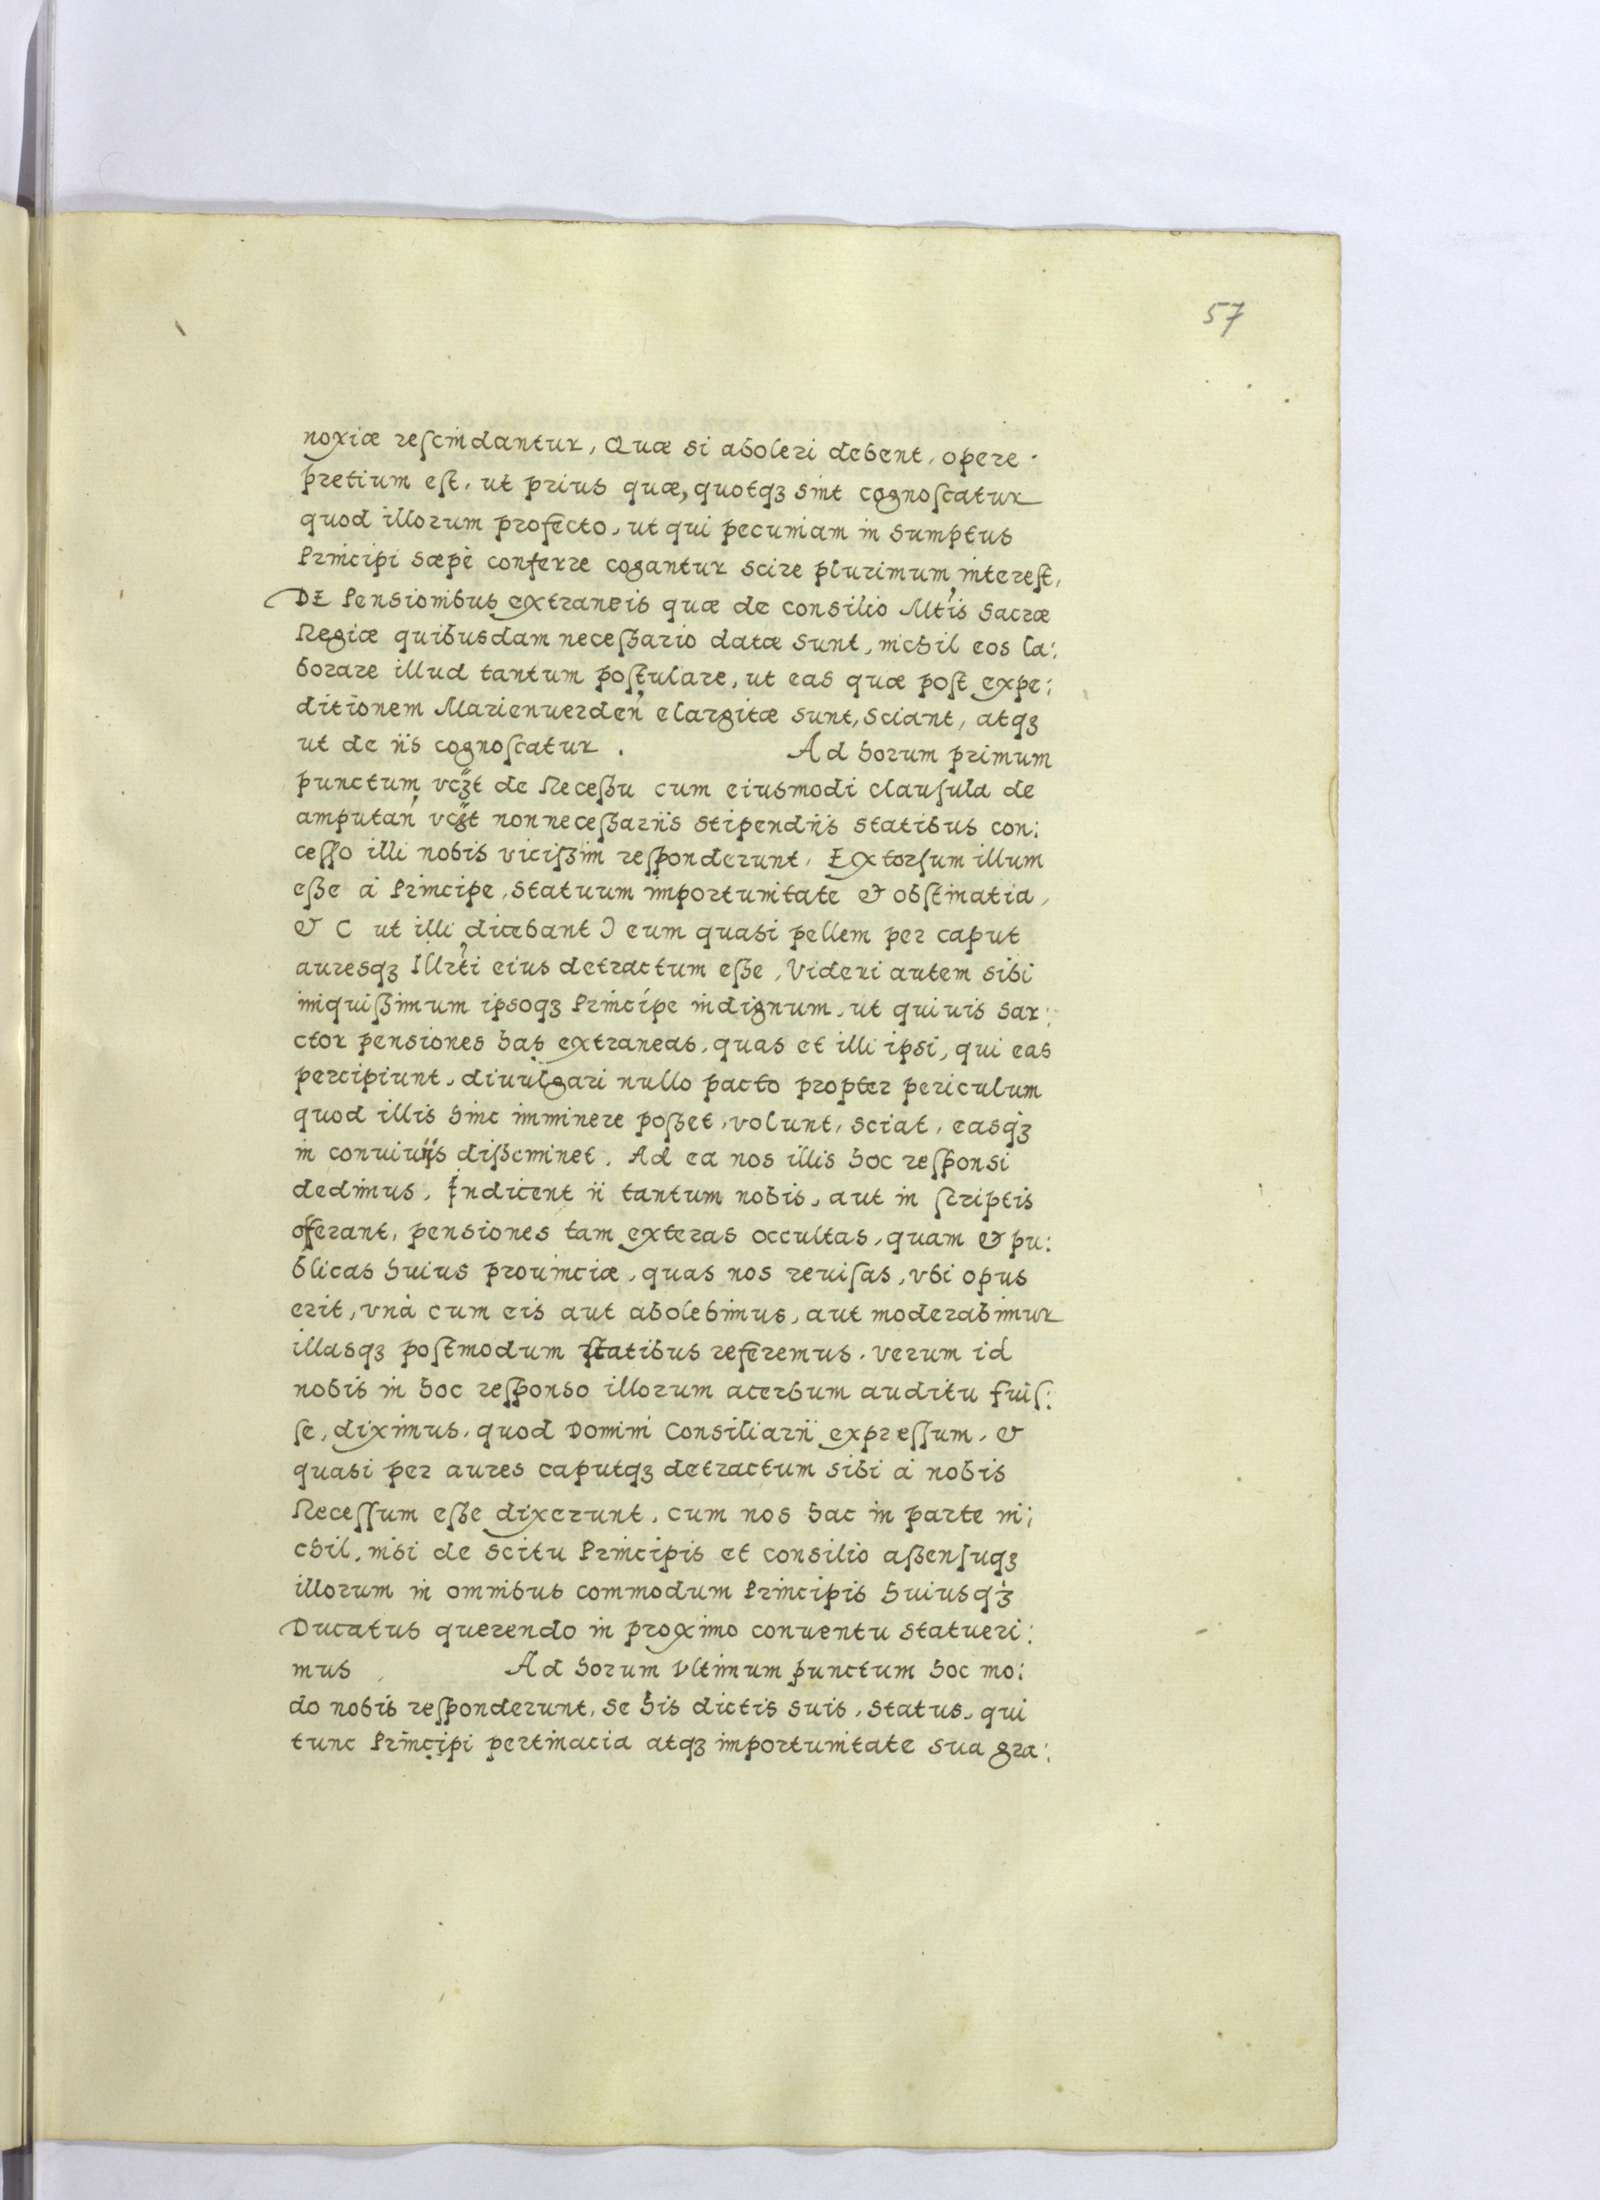 57
noxiæ reſcindantur, Quæ si aboleri debent, opere
pretium eſt, ut prius quæ, quotqꝫ sint cognoſcatur
quod illorum profecto, ut qui pecuniam in sumptus
Principi sæpè conferre cogantur scire plurimum intereſt,
DE Pensionibus extraneis quæ de consilio Mtis sacræ
Regiæ quibusdam neceſsario datæ sunt, nichil eos la:
borare illud tantum poſtulare, ut eas quæ poſt expe:
ditionem Marienuerden elargitæ sunt, sciant, atqꝫ
ut de iis cognoſcatur. Ad horum primum
punctum vcꝫt de Receſsu cum eiusmodi clauſula de
amputan vcꝫt non neceſsariis stipendiis statibus con:
ceſſo illi nobis viciſsim reſponderunt, Extorſum illum
eſse à Principe, statuum importunitate & obſtinatia,
& ( ut illi dicebant ) eum quasi pellem per caput
auresqꝫ Illrti eius detractum eſse, Videri autem sibi
iniquiſsimum ipsoqꝫ Principe indignum, ut quiuis sar:
ctor pensiones has extraneas, quas et illi ipsi, qui eas
percipiunt, diuulgari nullo pacto propter periculum
quod illis hinc imminere poſset, volunt, sciat, easqꝫ
in conuiuijs diſseminet. Ad ea nos illis hoc reſponsi
dedimus, Indicent ii tantum nobis, aut in ſcriptis
offerant, pensiones tam exteras occultas, quam & pu:
blicas huius prouinciæ, quas nos reuiſas, vbi opus
erit, vnà cum eis aut abolebimus, aut moderabimur
illasqꝫ poſtmodum ſtatibus referemus. verum id
nobis in hoc reſponso illorum acerbum auditu fuiſ:
ſe, diximus, quod Domini Consiliarii expreſſum, &
quasi per aures caputqꝫ detractum sibi à nobis
Receſſum eſse dixerunt, cum nos hac in parte ni:
chil, nisi de scitu Principis et consilio aſsenſuqꝫ
illorum in omnibus commodum Principis huiusqꝫ
Ducatus querendo in proximo conuentu statueri:
mus Ad horum vltimum punctum hoc mo:
do nobis reſponderunt, se his dictis suis, status, qui
tunc Principi pertinacia atqꝫ importunitate sua gra: